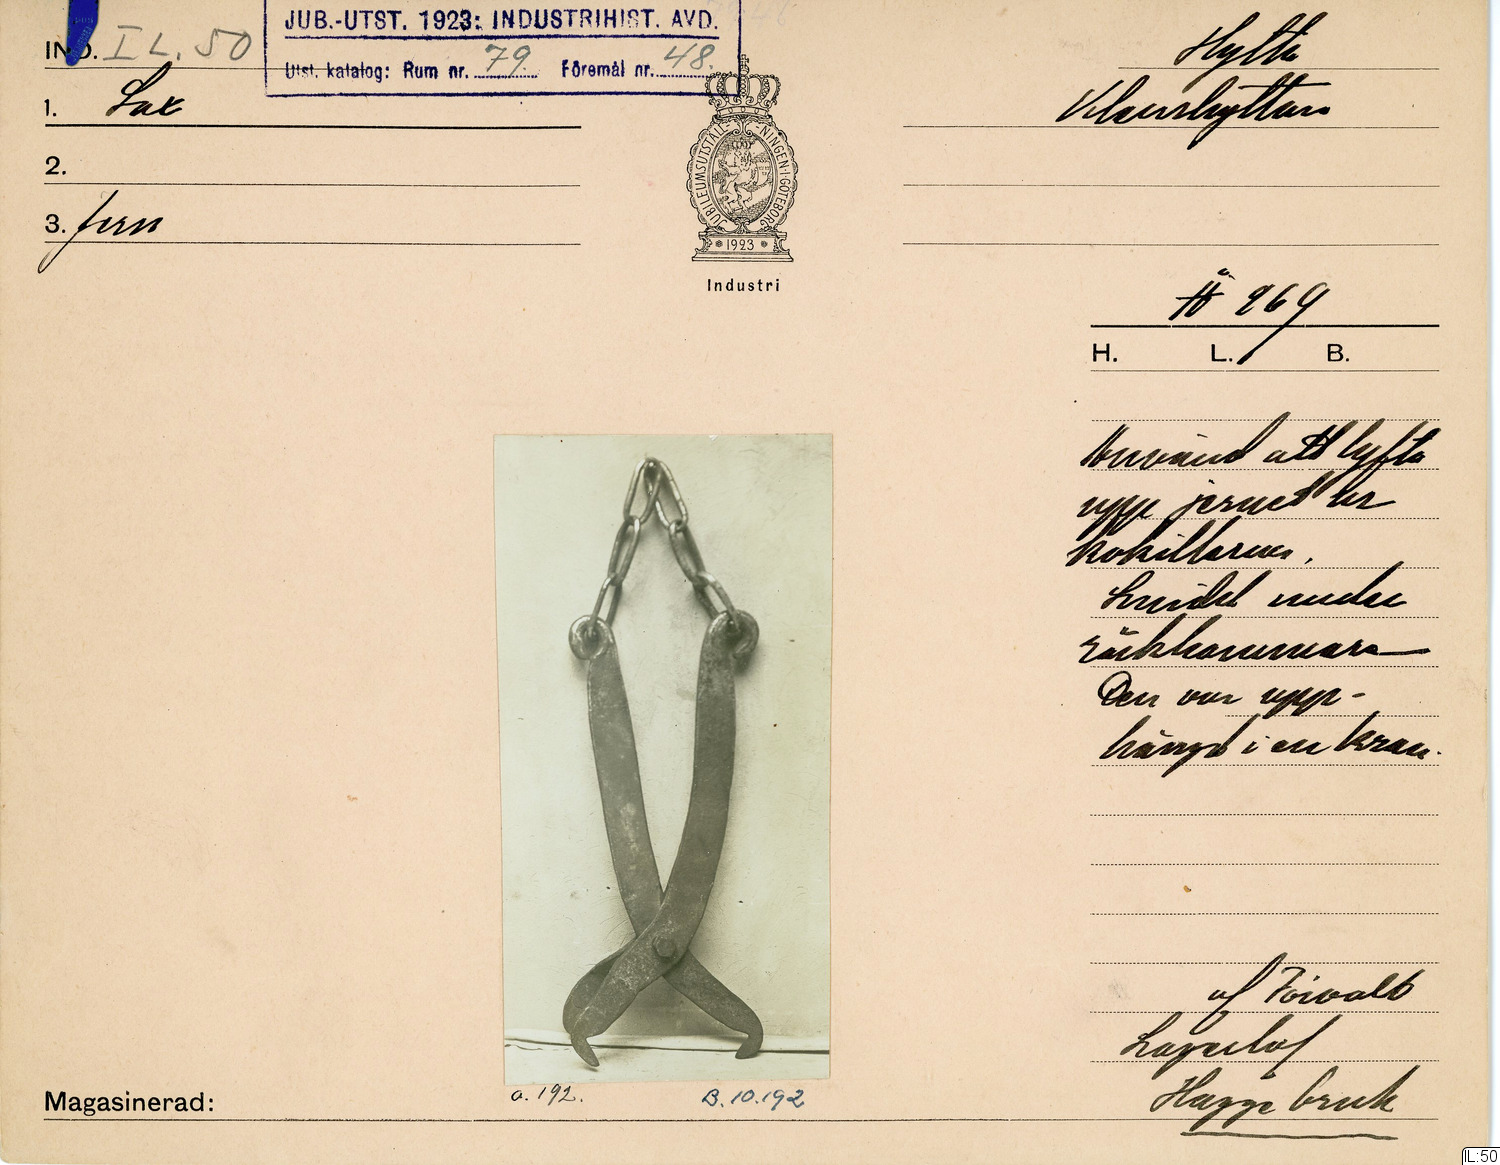 JUB.-UTST. 1923: INDUSTRIHIST. AVD.
Utst. katalog: Rum nr. 79 Föremål nr. 48.
IND. I L. 50
1. Sax
2.
3. Jern
Hytta
Klenshyttan
JUBILEUMSUTSTÄLLNINGEN·I·GÖTEBORG
1923
Industri
269
H. L. B.
Använd att lyfta
upp jernet ur
kokillerna.
Smidd under
räckhammare
Den var upp-
hängd i en kran.
af
Lagerlöf
Hagge bruk
a. 192.
B.10.192
Magasinerad:
IL:50